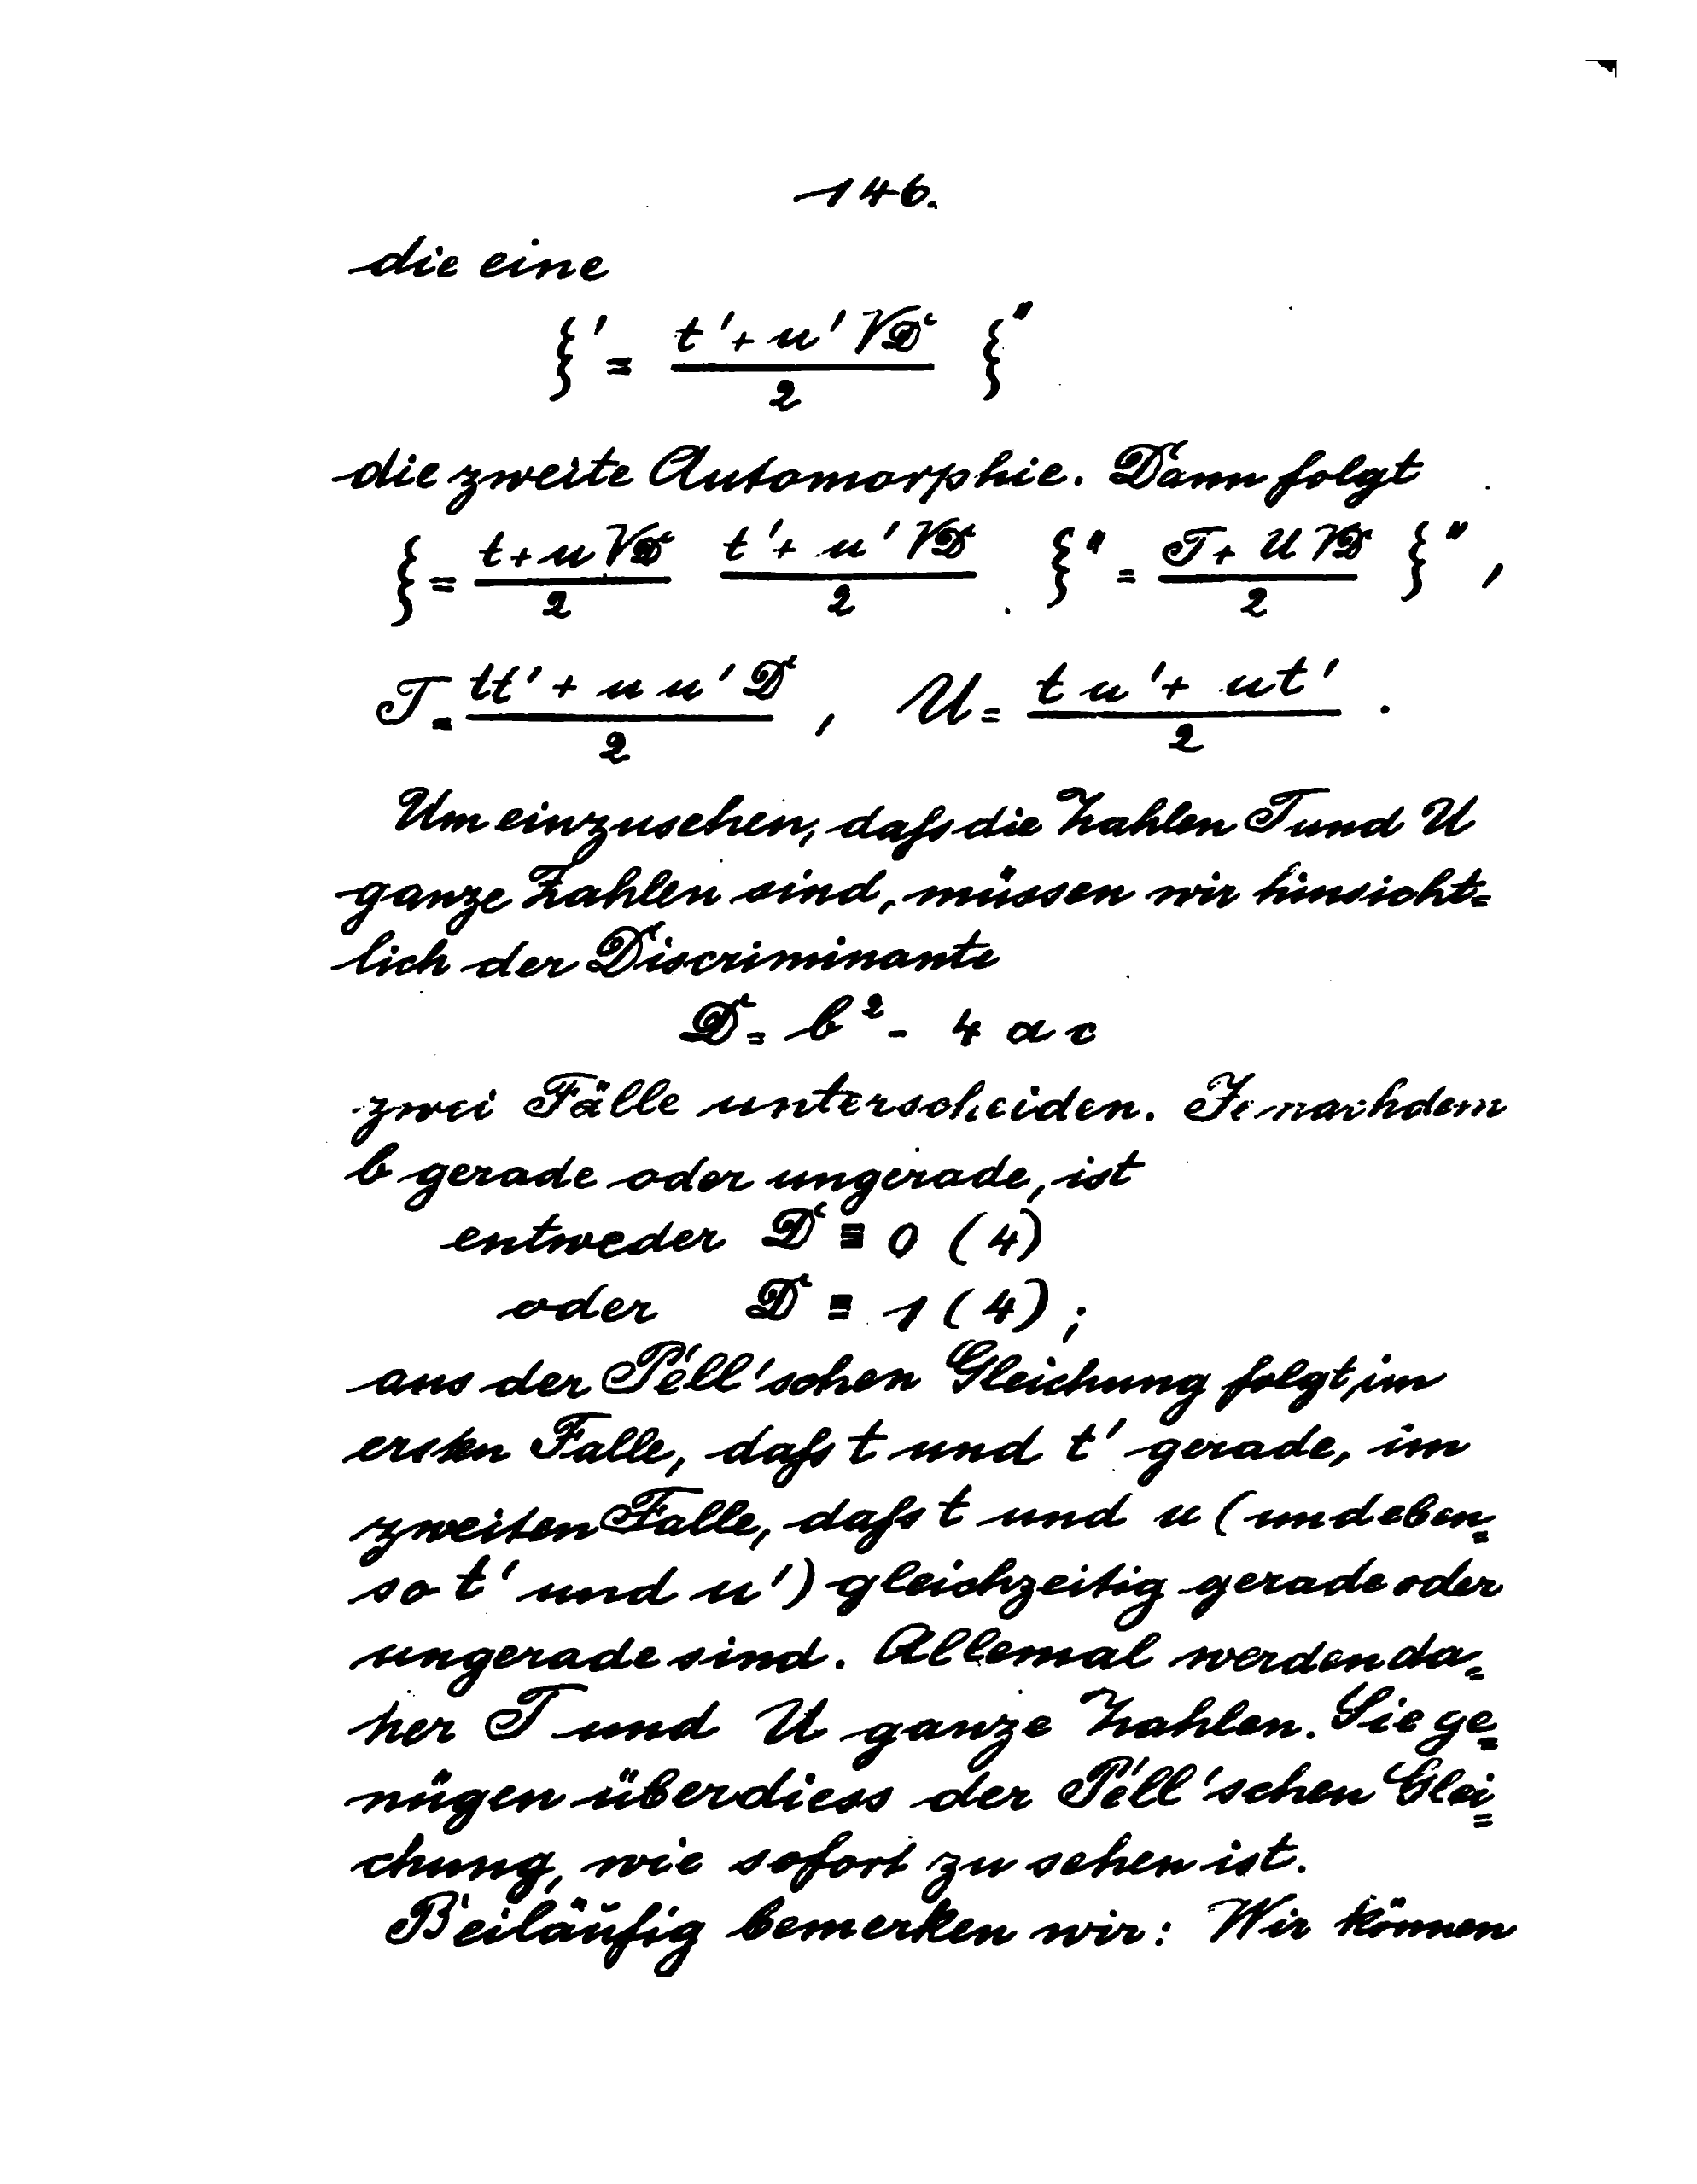 146.
die eine
ξ' = (t' + u' √D) / 2 ξ''
die zweite Automorphie. Dann folgt
ξ = (t + u √D) / 2 (t' + u' √D) / 2 ξ'' = (T + U √D) / 2 ξ'',
T = (tt' + u u' D) / 2 , U = (t u' + ut') / 2 .
Um einzusehen, dafs die Zahlen T und U
ganze Zahlen sind, müssen wir hinsicht=
lich der Discriminante
D = b² - 4 a c
zwei Fälle unterscheiden. Je nachdem
b gerade oder ungerade, ist
entweder D ≡ 0 (4)
oder D ≡ 1 (4) ;
aus der Pell'schen Gleichung folgt, im
ersten Falle, dafs t und t' gerade, im
zweiten Falle, dafs t und u (und eben=
so t' und u') gleichzeitig gerade oder
ungerade sind. Allemal werden da=
her T und U ganze Zahlen. Sie ge=
nügen überdiess der Pell'schen Glei=
chung, wie sofort zu sehen ist.
Beiläufig bemerken wir: Wir können